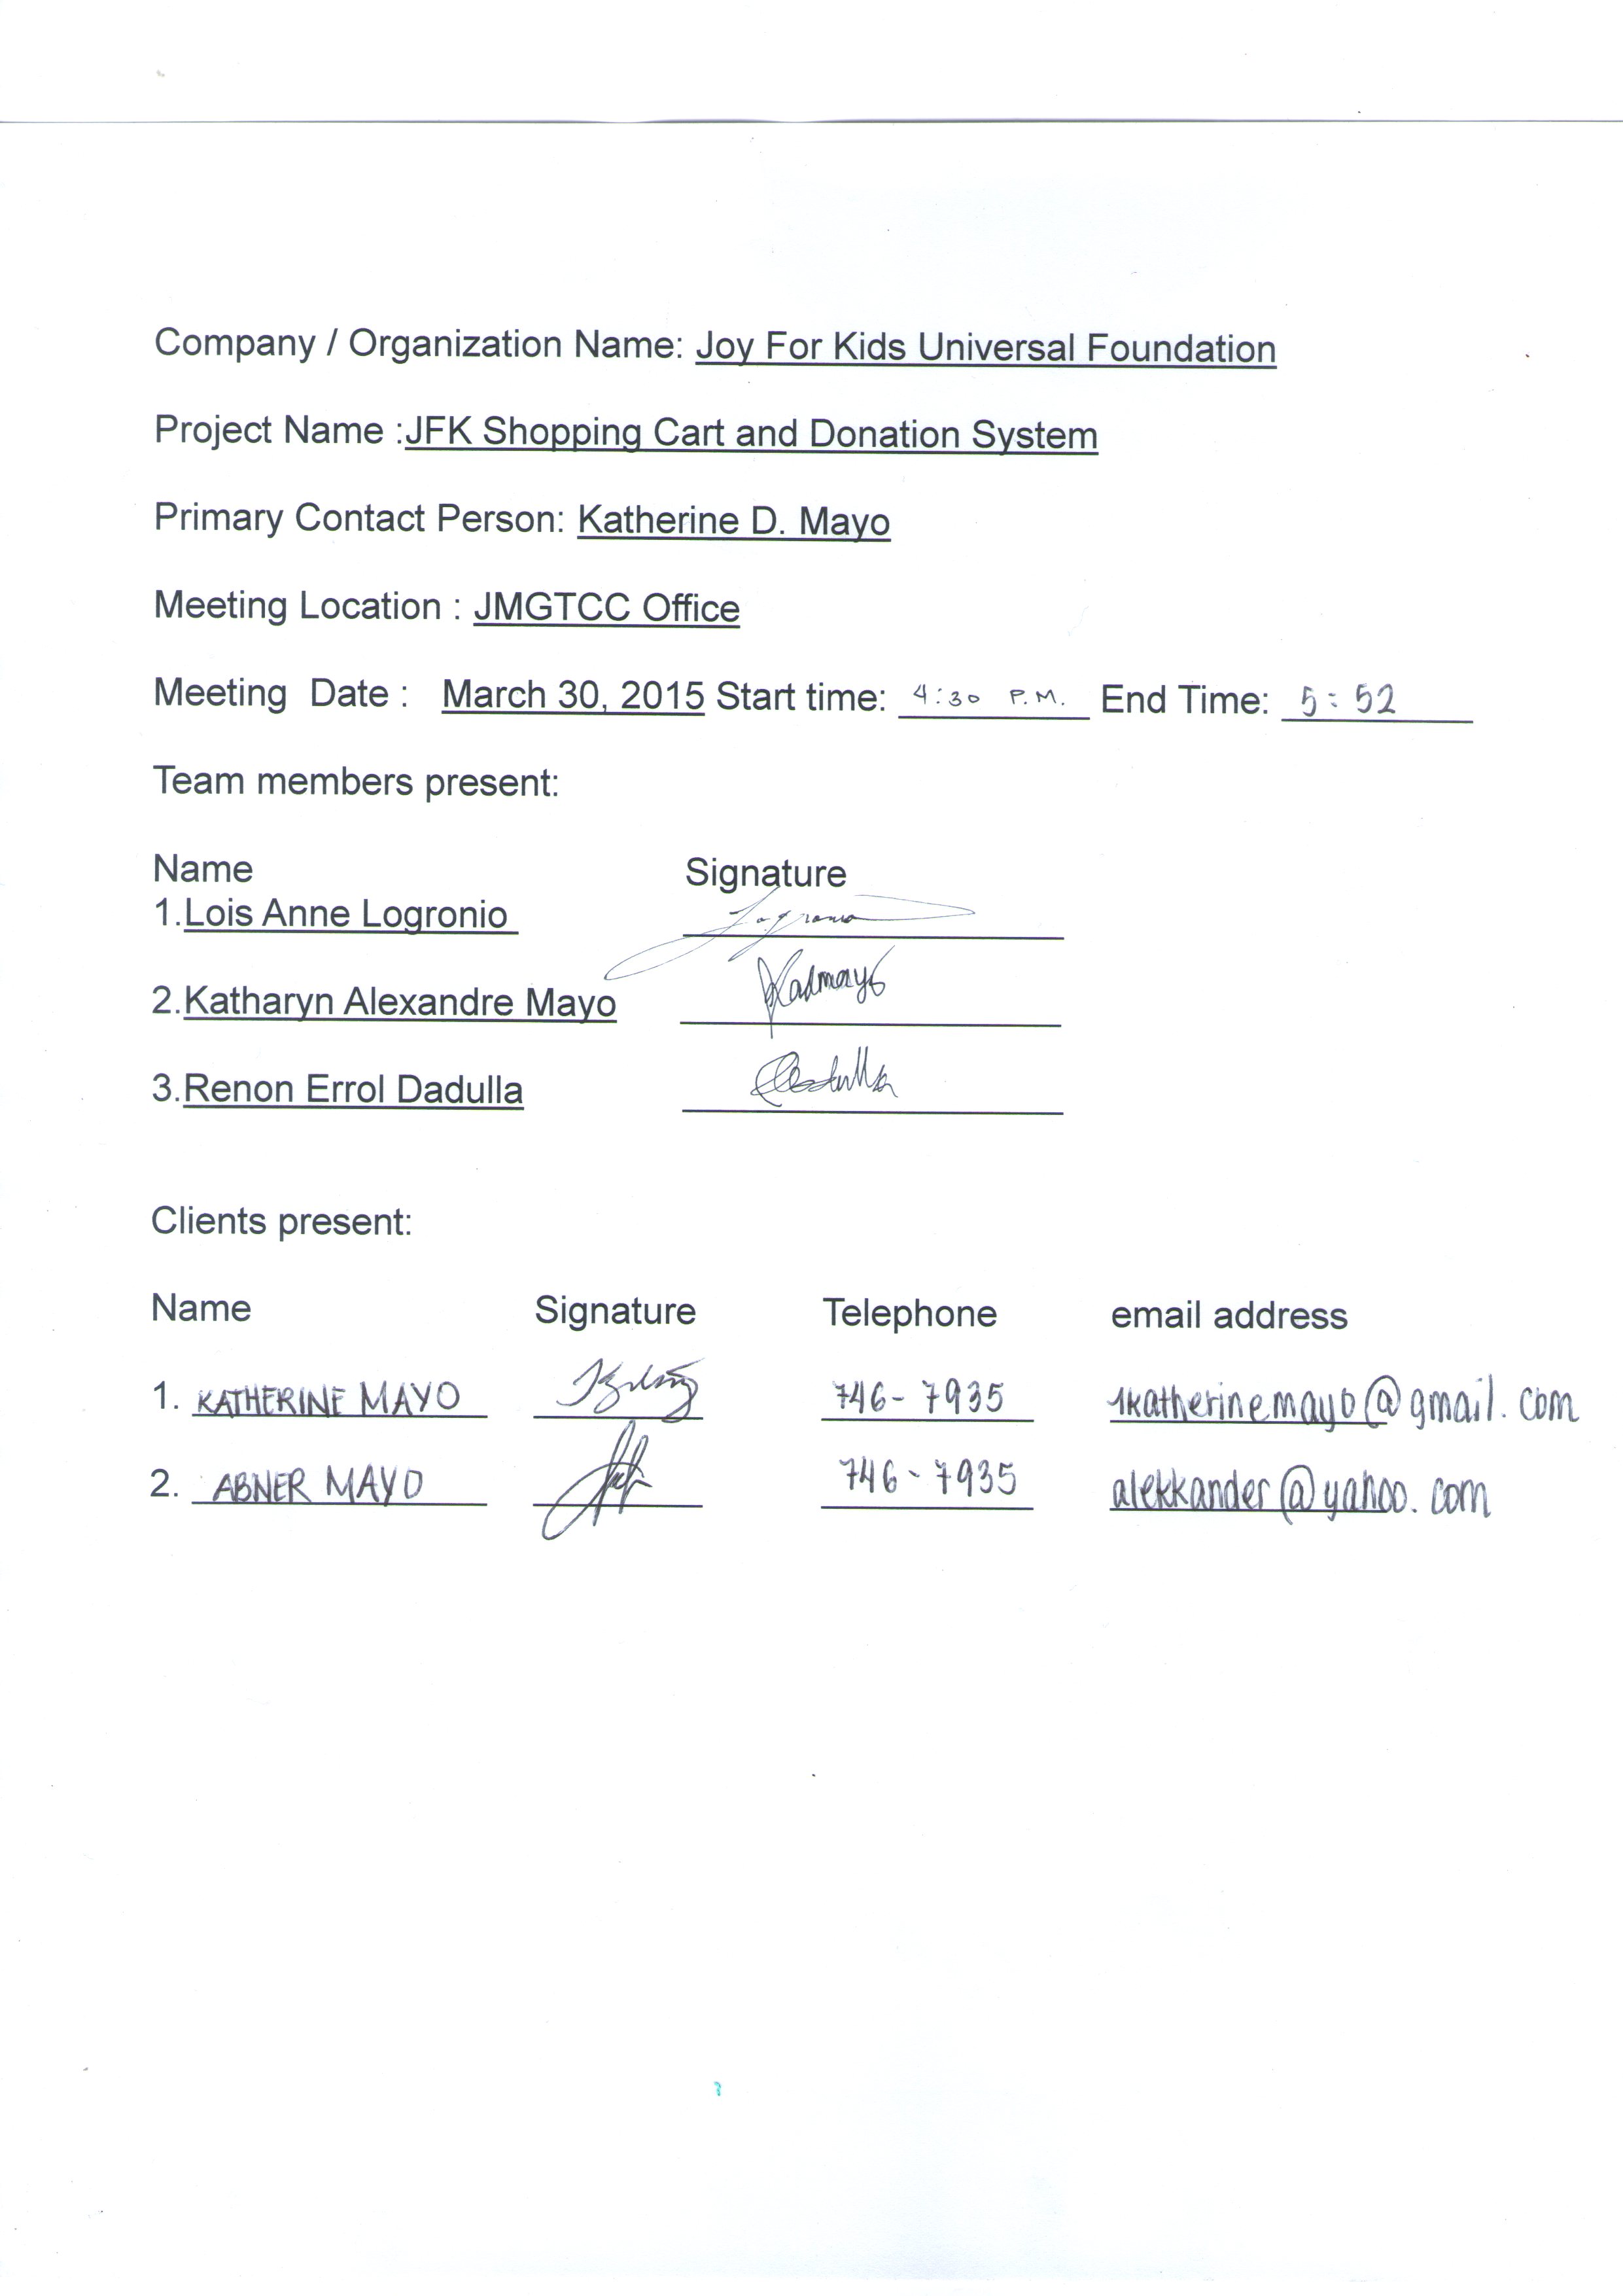 Company / Organization Name: Joy For Kids Universal Foundation
Project Name :JFK Shopping Cart and Donation System
Primary Contact Person: Katherine D. Mayo
Meeting Location : JMGTCC Office
Meeting Date : March 30, 2015 Start time: 4:30 P.M. End Time: 5:52
Team members present:
Name Signature
1.Lois Anne Logronio
2.Katharyn Alexandre Mayo
3.Renon Errol Dadulla
Clients present:
Name Signature Telephone email address
1. KATHERINE MAYO 746-7935 1katherinemayo@gmail.com
2. ABNER MAYO 746-7935 alekkander@yahoo.com